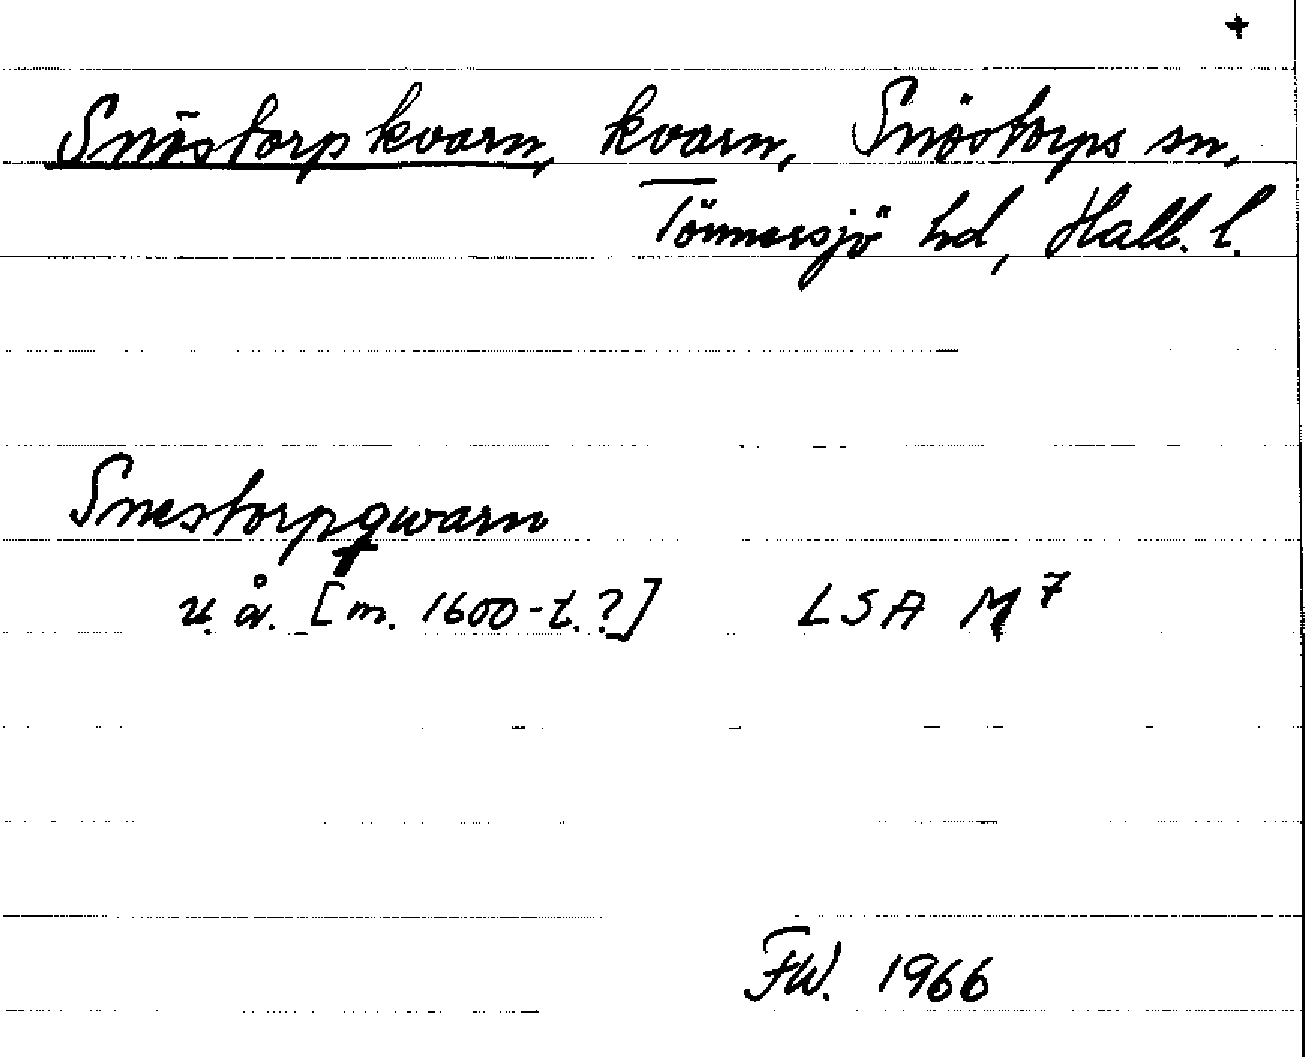 +
Snöstorpkvarn, kvarn, Snöstorps sn,
Tönnersjö hd, Hall. l.
Snestorpqwarn
u. å. [m. 1600-t.?] LSA M 7
FW. 1966